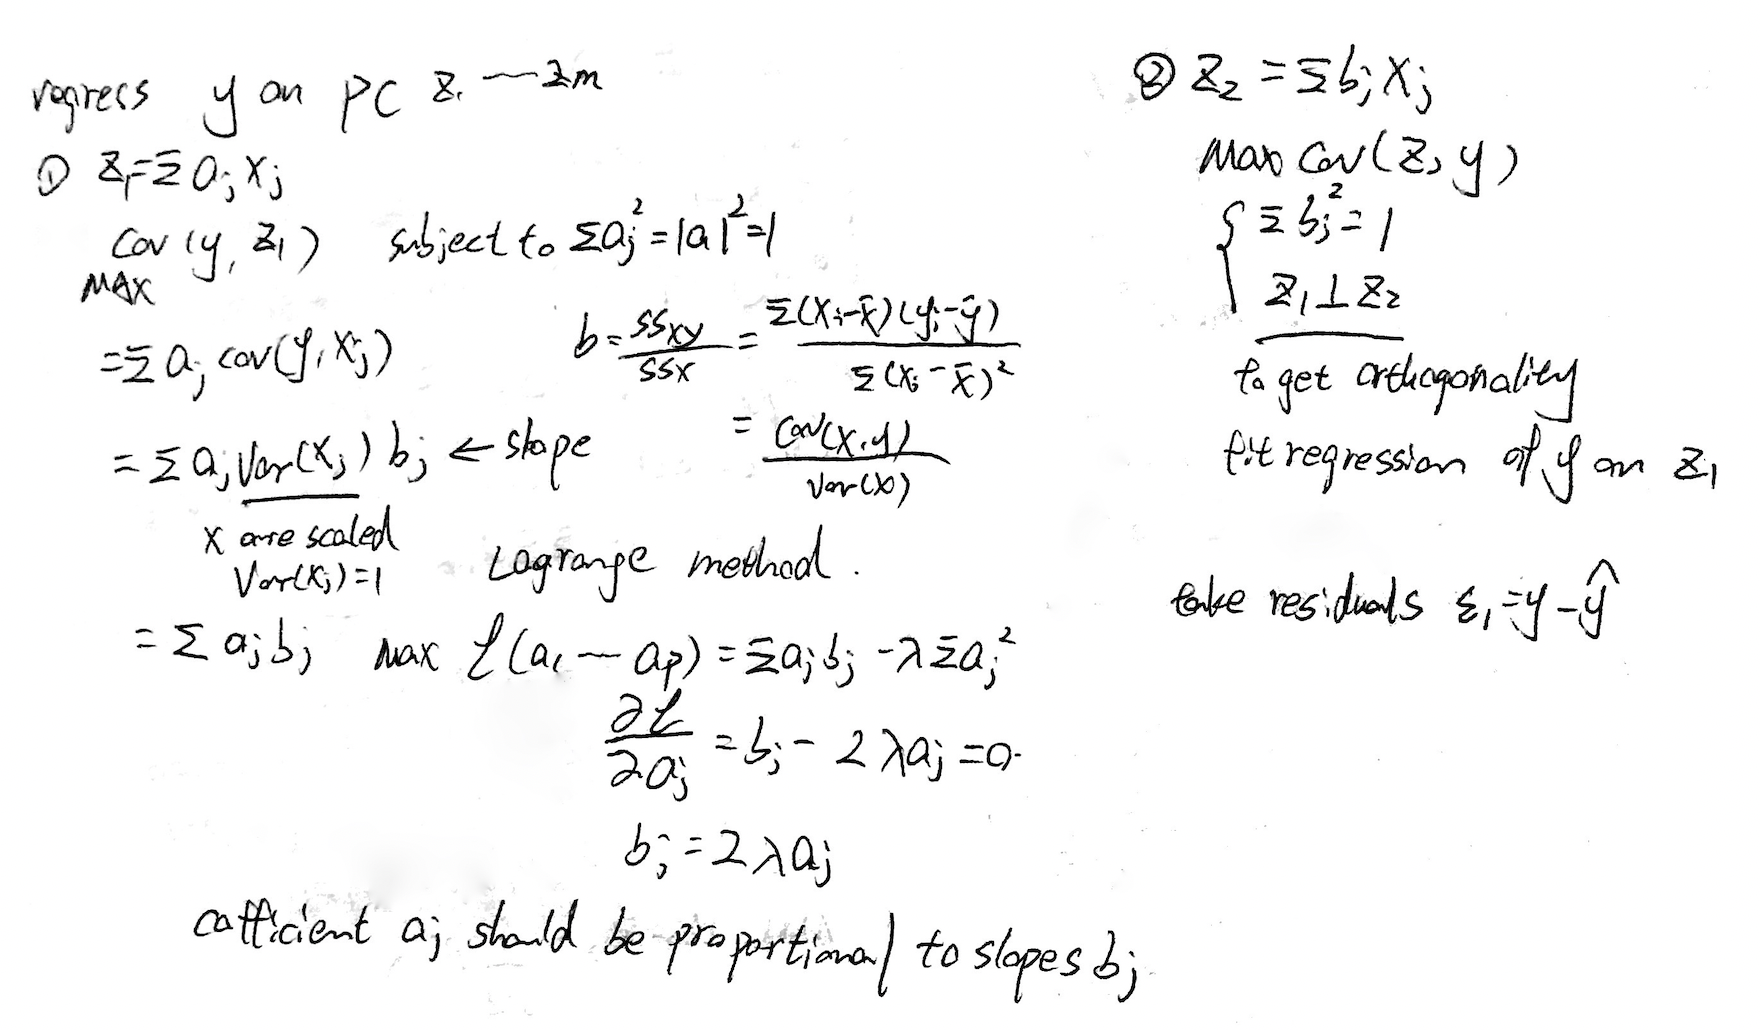 regress y on PC z₁ — zm
① z₁=Σ aⱼ xⱼ
Cov(y, z₁) subject to Σaⱼ²=|a|²=1
MAX
=Σ aⱼ cov(y, xⱼ)
b = SSxy/SSx = Σ(xᵢ-x̄)(yᵢ-ȳ)/Σ(xᵢ-x̄)²
= Cov(x,y)/Var(x)
= Σ aⱼ Var(xⱼ) bⱼ ← slope
x are scaled
Var(xⱼ)=1
Lagrange method.
= Σ aⱼbⱼ max ℒ(a₁ — ap) = Σaⱼbⱼ - λΣaⱼ²
∂ℒ/∂aⱼ = bⱼ - 2λaⱼ =0.
bⱼ = 2λaⱼ
cofficient aⱼ should be proportional to slopes bⱼ
② z₂ = Σbⱼxⱼ
Max Cov(z₂ y)
{ Σ bⱼ² = 1
z₁⊥z₂
to get orthogonality
fit regression of y on z₁
take residuals ε₁=y-ŷ